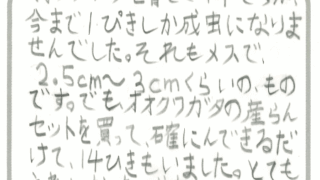 今まで1ぴきしか成虫になりま
せんでした。それもメスで、
2.5cm〜3cmくらいの、もの
です。でも、オオクワガタの産らん
セットを買って、確にんできるだ
けで、14ひきもいました。とても